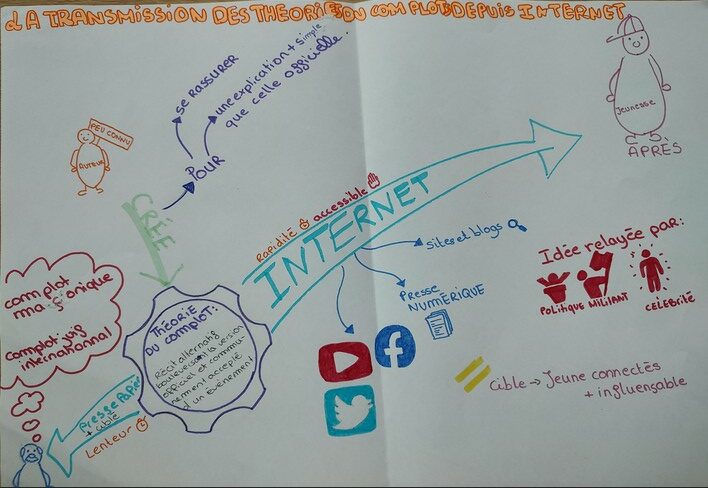 LA TRANSMISSION DES THEORIES DU COMPLOT DEPUIS INTERNET
PEU CONNU
AUTEUR
CRÉE
POUR
se RASSURER
une explication + simple
que celle officielle.
Jeunesse
APRÈS
Rapidité accessible
INTERNET
sites et blogs
Presse
NUMÉRIQUE
Idée relayée par:
POLITIQUE MILITANT CÉLÉBRITÉ
complot
maçonique
complot juif
international
THÉORIE
DU COMPLOT:
Récit alternatif
bouleversant la version
officiel et commu-
nément accepté
d'un événement
Presse Papier
+ ciblé
Lenteur
Cible → Jeune connectés
+ influençable